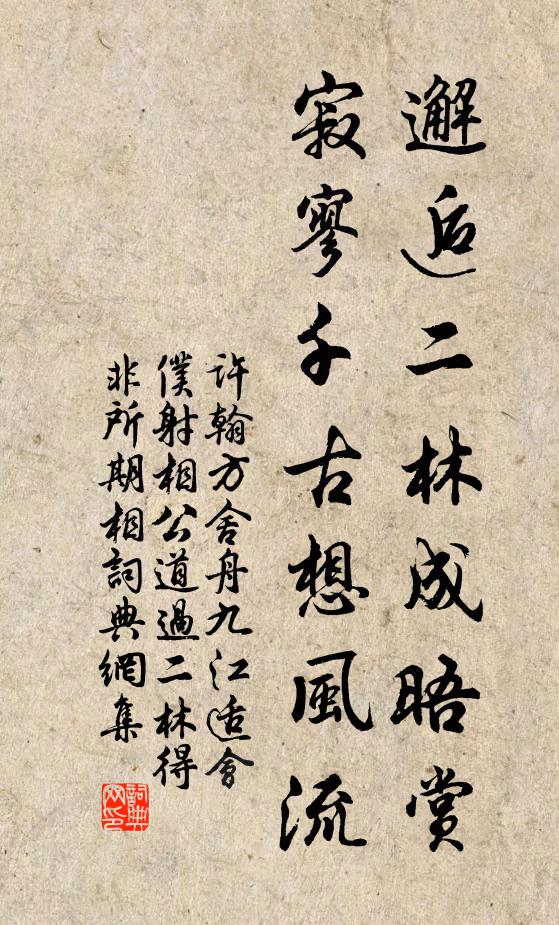 邂逅二林成晤賞
寂寥千古想風流
許翰方舍舟九江适會
僕射相公道過二林得
非所期相詞典網集
詞典网印